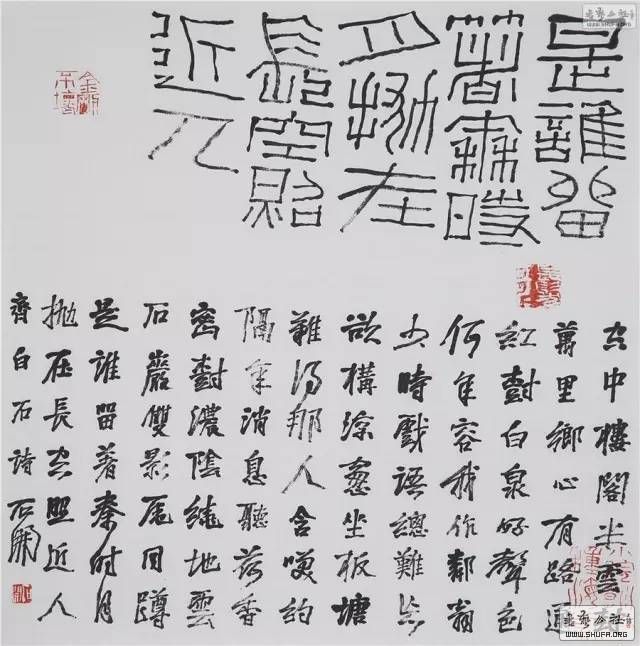 是誰留
著秦時
月抛在
長空照
近人
空中樓閣半雲
萬里鄉心有路通
紅樹白泉好聲色
何年容我作鄰翁
少時戲語總難忘
欲構涼窗坐板塘
難得那人含咲約
隔年消息聽荷香
密樹濃陰繞地雲
石巖雙影尾同蹲
是誰留著秦時月
抛在長空照近人
齊白石詩 石開
WWW.SHUFA.ORG
WWW.SHUFA.ORG